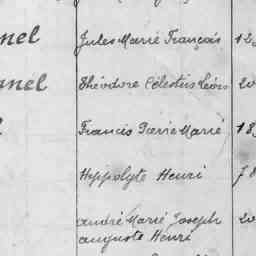 nel Jules Marie François 12
nel Théodore Célestin Léon 20
Francis Pierre Marie 18
Hyppolyte Henri
André Marie Joseph 20
auguste Henri